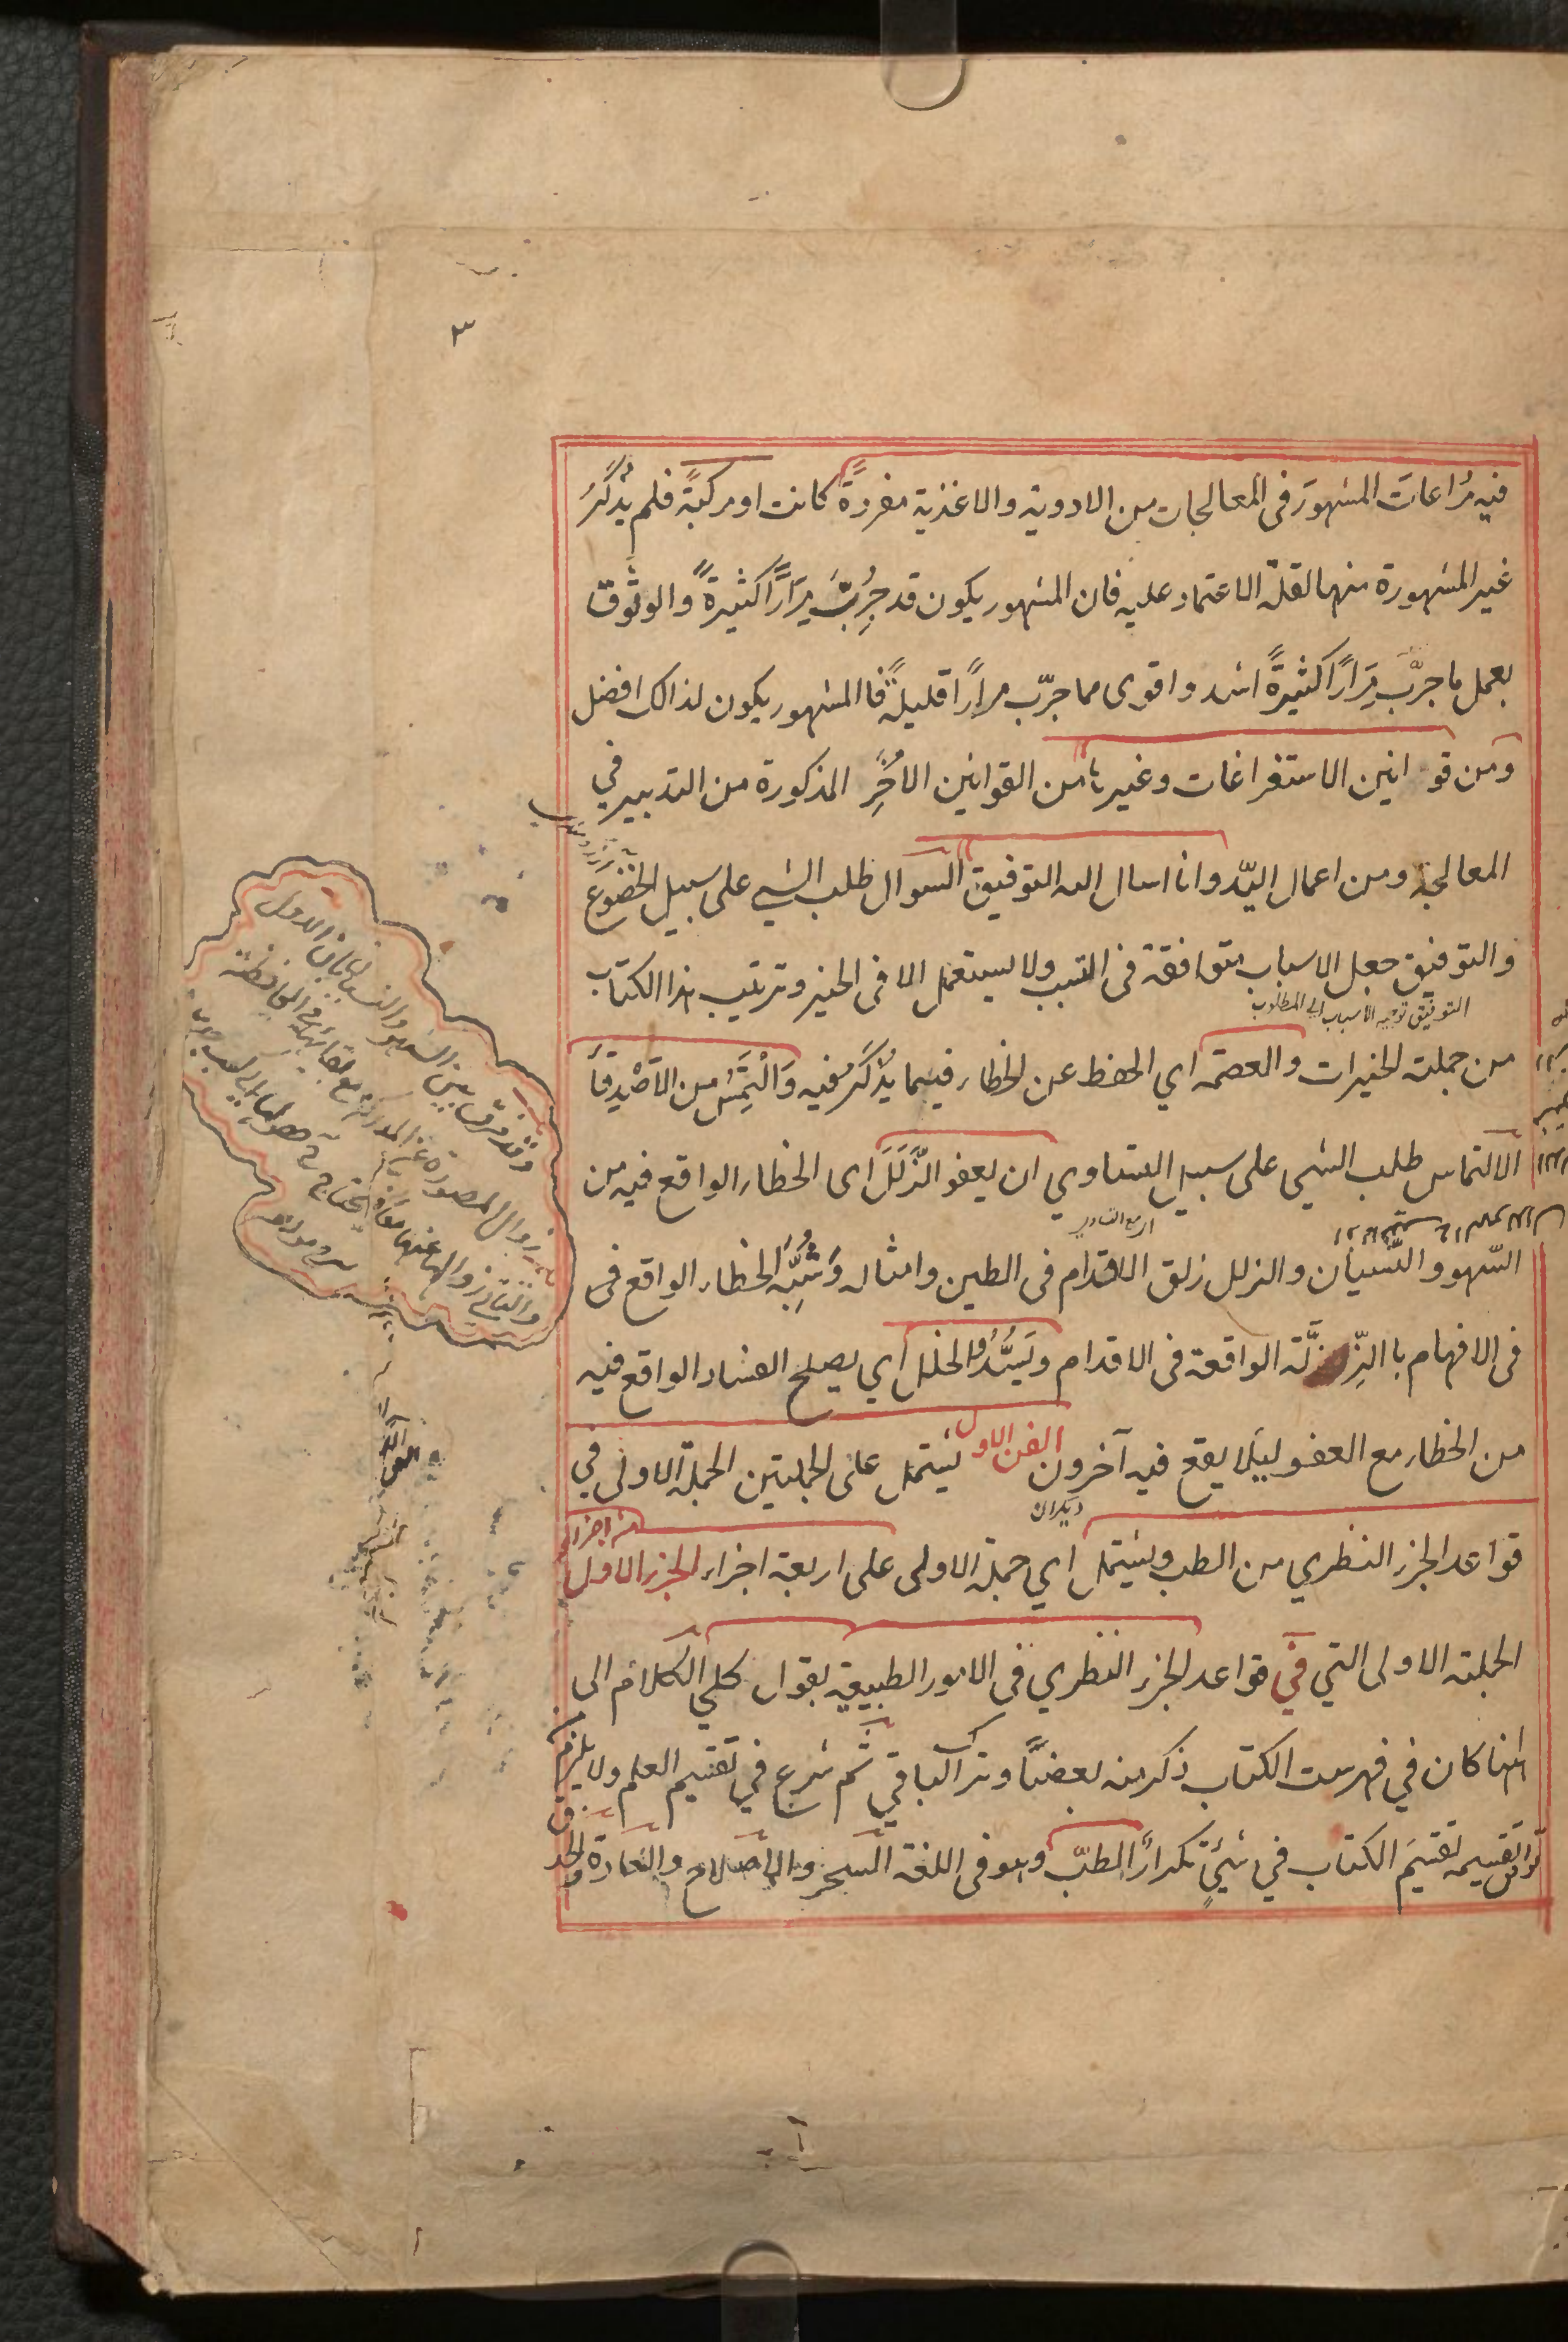 ٣
فيه مُراعاتَ المشهورَ فى المعالجات من الادوية والاغذية مفردةً كانت او مركبّة فلم يُذكَرُ
غير المشهورة منها لقلة الاعتماد عليه فان المشهور يكون قد جُرِبَّ مِرَارًا كثيرةً والوثُوق
بعمل ما جرّبَ مِرَارًا كثيرةً اشد واقوى مما جرّب مرارًا قليلةً فا المشهور يكون لذالك افضل
ومن قوانين الاستفراغات وغيرها من القوانين الأخَرِ المذكورة من التدبير في
المعالجة ومن اعمال اليدّ وانا اسال الله التوفيق السوال طلب الشي على سبيل الخضوع
والتوفيق جعل الاسباب متوافقة فى التسبب ولا يستعمل الا فى الخيز وترتيب هذا الكتاب
التوفيق توجيه الاسباب الى المطلوب
من جملت الخيرات والعصمه اي الحفظ عن الخطاء فيما يُذكَرُ فيه وَالْتَمِسُ من الاَصْدِقاَ
الالتماس طلب الشي على سبيل التساوي ان يعفو الزَّلَلَ اى الخطاء الواقع فيه من
السّهو والنّسيان والزلل زلق الاقدام فى الطين وامثاله وَشُبِّهَ الخطاء الواقع فى
فى الافهام با الزِّ زلَّة الواقعة فى الاقدام ويَسُدُّوا الخلل اي يصلح الفساد الواقع فيه
من الخطاء مع العفو ليَلا يقع فيه آخرون الفن الاول يشتمل على الجملتين الجملة الاولى في
ديكران
قواعد الجزء النظري من الطب ويشتمل اي جملة الاولى على اربعة اجزاء الجزء الاول
من اجزاء
الجملته الاولى التي في قواعد الجزء النظري فى الامور الطبيعية بقول كلي الكلام الى
ههنا كان في فهرست الكتاب ذكر منه بعضاً وترك الباقي ثم شرع في تقسيم العلم ولا يلزم
توافق تقسيمه تقسيَم الكتاب في شيئٍ تكراراً الطبّ وهو فى اللغة السحر والاصلاح والعادة والحذق
وقد فرق بين السهو والنسيان بان الاول
زوال الصورة عن المدركة مع بقائها فى الحافظة
والثاني زوالها عنهما معًا فيحتاج فى حصولها الى سبب جديد